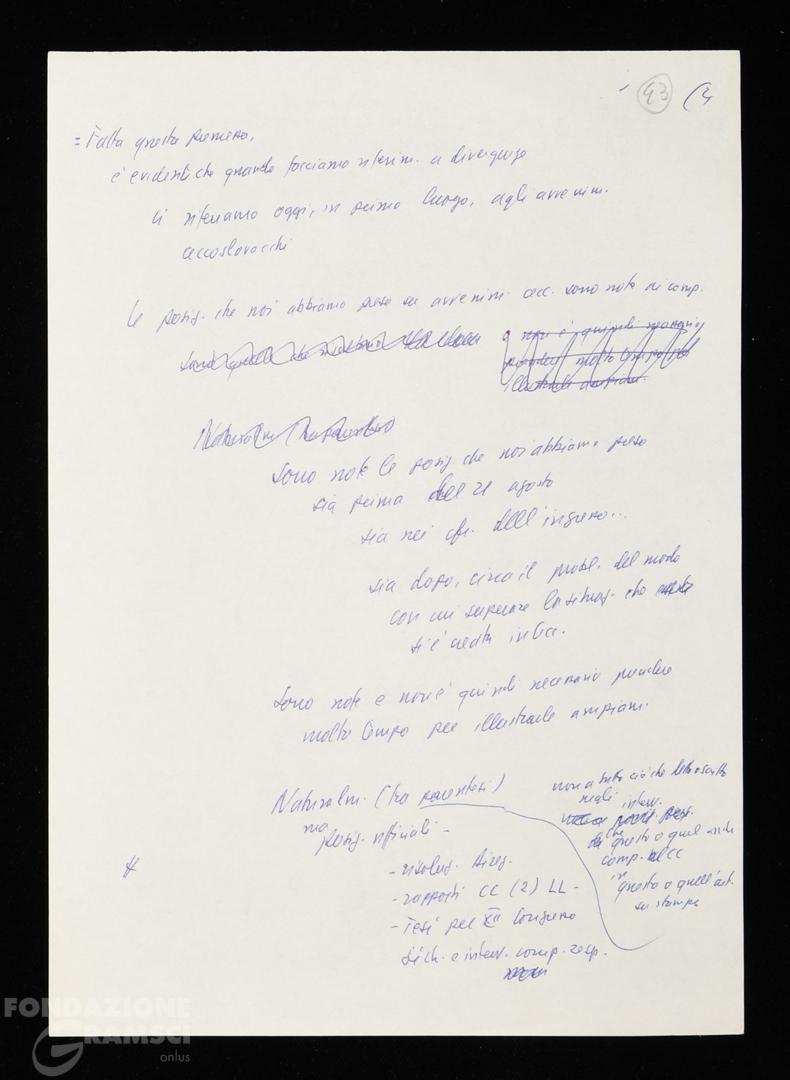 43 (4
= Fatta questa premessa,
è evidente che quando facciamo riferim. a divergenze
ci riferiamo oggi, in primo luogo, agli avvenim.
cecoslovacchi
Le posiz. che noi abbiamo preso su avvenim. cec. sono note ai comp.
e non è quindi necessario
prender molto tempo per
illustrarle ampiam.
Naturalm. (tra parentesi)
Sono note le posiz. che noi abbiamo preso
sia prima del 21 agosto
sia nei cfr. dell'ingresso...
sia dopo, circa il probl. del modo
con cui superare la situaz. che
si è creata in Cec.
Sono note e non è quindi necessario prendere
molto tempo per illustrarle ampiam.
Naturalm. (tra parentesi)
ma posiz. ufficiali -
- risoluz. Direz.
- rapporti CC (2) LL -
- Tesi per XII Congresso
dich. e interv. comp. resp.
non a tutto ciò che detto o scritto
negli interv.
che questo o quel
comp. del CC
in questo o quell'art.
su stampa
#
FONDAZIONE
GRAMSCI
onlus